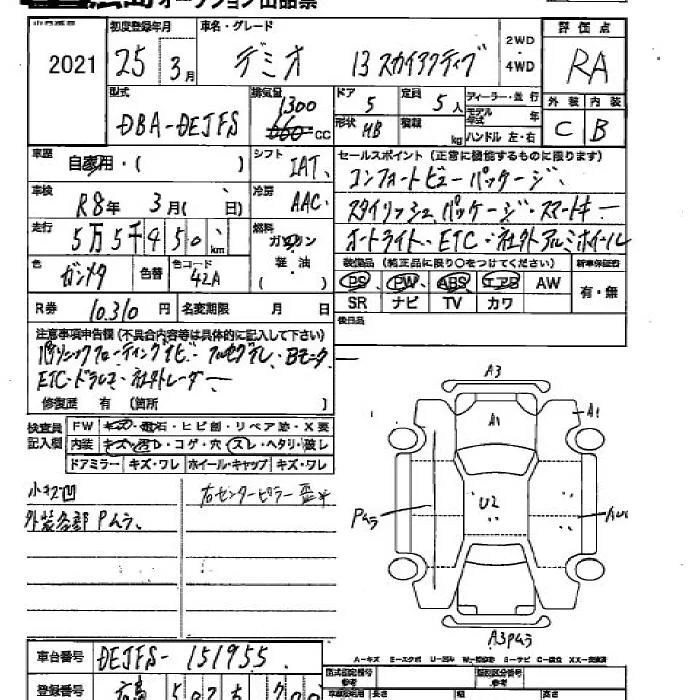 オークション出品票
2021
初度登録年月
25年3月
車名・グレード
デミオ 13 スカイアクティブ
2WD・4WD
評価点
RA
型式
DBA-DEJFS
排気量
1300
660 CC
ドア 5
定員 5人
形状 HB
積載 kg
ディーラー・並行
モデル年式 年
ハンドル 左・右
外装 内装
C B
車歴 自家用・( )
シフト IAT
セールスポイント (正常に機能するものに限ります)
コンフォートビューパッケージ
スタイリッシュパッケージ・スマートキー
オートライト・ETC・社外アルミホイール
車検 R8年 3月( 日)
冷房 AAC
走行 5万5千450 km
燃料 ガソリン 軽・油 ( )
色 ガンメタ
色替
色コード 42A
装備品 (純正品に限り○をつけてください)
新車保証書
PS PW ABS エアB AW
SR ナビ TV カワ
有・無
R券 10,310円
名変期限 月 日
後日品
注意事項申告欄 (不具合内容等は具体的に記入して下さい)
パナソニックフローティングナビ・フルセグTV・Bモニター
ETC・ドラレコ・社外レーダー
修復歴 有 (箇所 )
検査員記入欄
FW キズ・飛石・ヒビ割・リペア跡・X要
内装 キズ・汚レ・コゲ・穴・スレ・ヘタリ・破レ
ドアミラー キズ・ワレ ホイール・キャップ キズ・ワレ
小キズ凹
外装各部Pムラ、
右センターピラー
A3
A1
A1
U2
Pムラ
A3Pムラ
A-キズ E-エクボ U-凹み
車台番号 DEJFS-151955
登録番号 広島
型式指定番号
類別区分番号
参考
長さ 幅 高さ